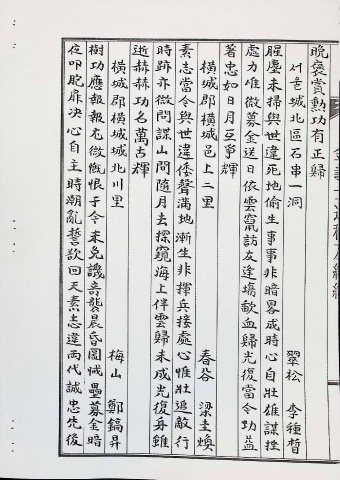 晚褒賞勲功有正歸
서울城北區石串一洞　翠松 李種晳
腥塵未掃與世違死地偷生事事非暗畧成時心自壯雄謀挫
處力惟微募金送日依雲竄訪友逢場歃血歸光復當今功益
著忠如日月互爭輝
橫城郡橫城邑上二里　春谷 梁圭煥
素志當令與世違倭聲滿地漸生非揮兵接處心惟壯追敵行
時跡亦微問謀山間隨月去探窺海上伴雲歸未成光復身雖
逝赫赫功名萬古輝
橫城郡橫城城北川里　梅山 鄭鎬昇
樹功應報報尤微慨恨子今未免譏奇襲晨昏圖滅壘募金暗
夜叩朱扉决心自主時潮亂誓欲回天素志違兩代誠忠先後